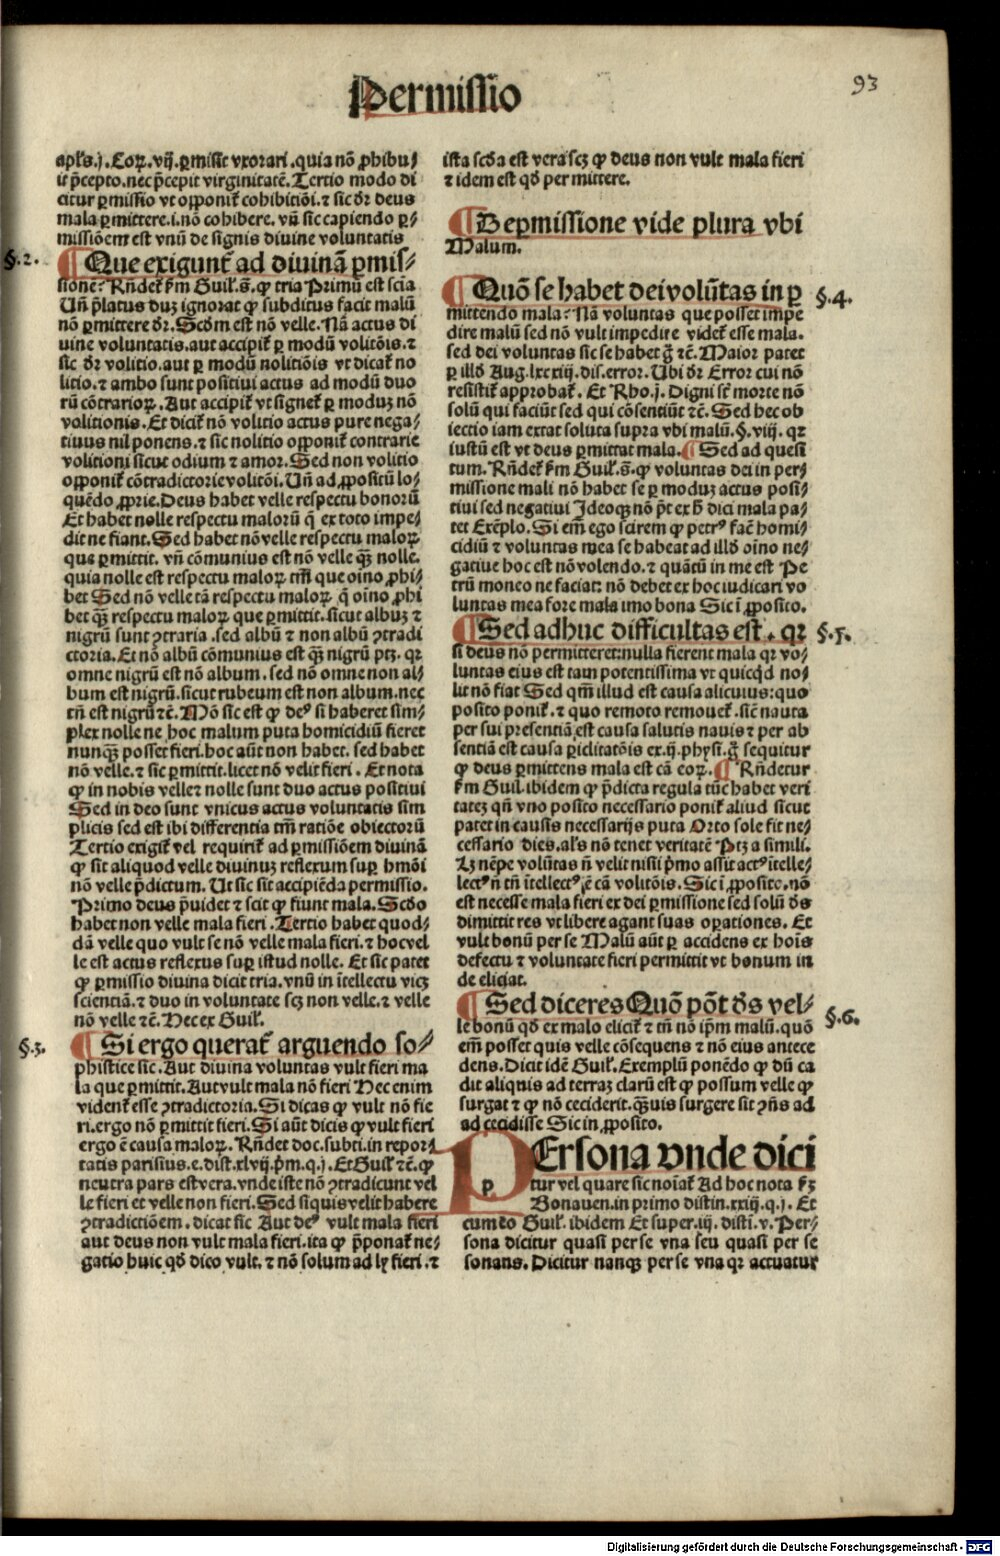 Permissio
93
apłs.j. Coꝝ. vij. ꝑmisit vxorari. quia nō ꝓhibu⸗
it p̄cepto. nec p̄cepit virginitatē. Tertio modo di
citur ꝑmissio vt opponit᷑ cohibitiōi. ⁊ sic dr̄ deus
mala ꝑmittere .i. nō cohibere. vn̄ sic capiendo ꝑ⸗
missiōem est vnū de signis diuine voluntatis
§.2.
¶ Que exigunt᷑ ad diuinā ꝑmis⸗
sionē? Rn̄det᷑ ẜm Guil. s̄. ꝙ tria Primū est scīa
Un̄ p̄latus duꝫ ignorat ꝙ subditus facit malū
nō ꝑmittere dr̄. Scd̄m est nō velle. Nā actus di
uine voluntatis. aut accipit᷑ ꝑ modū volitōis. ⁊
sic dr̄ volitio. aut ꝑ modū nolitiōis vt dicat᷑ no
litio. ⁊ ambo sunt positiui actus ad modū duo
rū cōtrarioꝝ. Aut accipit᷑ vt signet᷑ ꝑ moduꝫ nō
volitionis. Et dicit᷑ nō volitio actus pure nega⸗
tiuus nil ponens. ⁊ sic nolitio opponit᷑ contrarie
volitioni sicut odium ⁊ amor. Sed non volitio
opponit᷑ cōtradictorie volitōi. Un̄ ad ꝓpositū lo⸗
quēdo ꝓprie. Deus habet velle respectu bonorū
Et habet nolle respectu malorū q̄ ex toto impe⸗
dit ne fiant. Sed habet nō velle respectu maloꝝ
que ꝑmittit. vn̄ cōmunius est nō velle qꝫ̄ nolle.
quia nolle est respectu maloꝝ tm̄ que oīno ꝓhi⸗
bet Sed nō velle tā respectu maloꝝ q̄ oīno ꝓhi
bet qꝫ̄ respectu maloꝝ que ꝑmittit. sicut albuꝫ ⁊
nigrū sunt ꝯtraria. sed albū ⁊ non albū ꝯtradi
ctoria. Et nō albū cōmunius est qꝫ̄ nigrū ptꝫ. qꝛ
omne nigrū est nō album. sed nō omne non al⸗
bum est nigrū. sicut rubeum est non album. nec
tn̄ est nigrū ⁊c̄. Mō sic est ꝙ deꝰ si haberet sim⸗
plex nolle ne hoc malum puta homicidiū fieret
nunqꝫ̄ posset fieri. hoc aūt non habet. sed habet
nō velle. ⁊ sic ꝑmittit. licet nō velit fieri. Et nota
ꝙ in nobis velle ⁊ nolle sunt duo actus positiui
Sed in deo sunt vnicus actus voluntatis sim
plicis sed est ibi differentia tm̄ ratiōe obiectorū
Tertio exigit᷑ vel requirit᷑ ad ꝑmissiōem diuinā
ꝙ sit aliquod velle diuinuꝫ reflexum suꝑ hmōi
nō velle p̄dictum. Ut sic sit accipiēda permissio.
Primo deus p̄uidet ⁊ scit ꝙ fiunt mala. Scd̄o
habet non velle mala fieri. Tertio habet quod⸗
dā velle quo vult se nō velle mala fieri. ⁊ hoc vel
le est actus reflexus suꝑ istud nolle. Et sic patet
ꝙ ꝑmissio diuina dicit tria. vnū in ītellectu vicꝫ
scientiā. ⁊ duo in voluntate scꝫ non velle. ⁊ velle
nō velle ⁊c̄. Nec ex Guil.
§.3.
¶ Si ergo querat᷑ arguendo so⸗
phistice sic. Aut diuina voluntas vult fieri ma
la que ꝑmittit. Aut vult mala nō fieri Nec enim
vident᷑ esse ꝯtradictoria. Si dicas ꝙ vult nō fie
ri. ergo nō ꝑmittit fieri. Si aūt dicis ꝙ vult fieri
ergo ē causa maloꝝ. Rn̄det doc. subti. in repor⸗
tatis parisius. e. dist. xlvij. p̄m. q. j. Et Guil ⁊c̄. ꝙ
neutra pars est vera. vnde iste nō ꝯtradicunt vel
le fieri et velle non fieri. Sed si quis velit habere
ꝯtradictiōem. dicat sic Aut deꝰ vult mala fieri
aut deus non vult mala fieri. ita ꝙ p̄ponat᷑ ne⸗
gatio huic qd̄ dico vult. ⁊ nō solum ad ly fieri. ⁊
ista scd̄a est vera scꝫ ꝙ deus non vult mala fieri
⁊ idem est qd̄ permittere.
¶ De permissione vide plura vbi
Malum.
§.4.
¶ Quō se habet dei volūtas in ꝑ
mittendo mala? Nā voluntas que posset impe
dire malū sed nō vult impedire videt᷑ esse mala.
sed dei voluntas sic se habet g̊ ⁊c̄. Maior patet
ꝑ illd̄ Aug. lxxxiij. dis. error. Ubi dr̄ Error cui nō
resistit᷑ approbat᷑. Et Rho. j. Digni sūt morte nō
solū qui faciūt sed qui cōsentiūt ⁊c̄. Sed hec ob
iectio iam extat soluta supra vbi malū. §. viij. qꝛ
iustū est vt deus ꝑmittat mala. ¶ Sed ad quesi
tum. Rn̄det᷑ ẜm Guil. s̄. ꝙ voluntas dei in per⸗
missione mali nō habet se ꝑ moduꝫ actus posi⸗
tiui sed negatiui Ideoqꝫ nō pt̄ ex h̄ dici mala pa⸗
tet Exēplo. Si em̄ ego scirem ꝙ petrꝰ facit homi⸗
cidiū ⁊ voluntas mea se habeat ad illd̄ oīno ne⸗
gatiue hoc est nō volendo. ⁊ quātū in me est Pe
trū moneo ne faciat: nō debet ex hoc iudicari vo
luntas mea fore mala imo bona Sic ī ꝓposito.
§.5.
¶ Sed adhuc difficultas est. qꝛ
si deus nō permitteret: nulla fierent mala qꝛ vo⸗
luntas eius est tam potentissima vt quicqd̄ no⸗
lit nō fiat Sed qm̄ illud est causa alicuius: quo
posito ponit᷑. ⁊ quo remoto remouet᷑. sic̄ nauta
per sui presentiā est causa salutis nauis ⁊ per ab
sentiā est causa ꝑiclitatōis ex. ij. physi. g̊ sequitur
ꝙ deus ꝑmittens mala est cā eoꝝ. ¶ Rn̄detur
ẜm Guil. ibidem ꝙ p̄dicta regula tūc habet veri
tateꝫ qn̄ vno posito necessario ponit᷑ aliud sicut
patet in causis necessarijs puta Orto sole fit ne⸗
cessario dies. als̄ nō tenet veritatē Ptꝫ a simili.
Lꝫ nēpe volūtas n̄ velit nisi p̄mo assit actꝰ ītelle⸗
lectꝰ n̄ tn̄ ītellectꝰ ē cā volitōis. Sic ī ꝓposito. nō
est necesse mala fieri ex dei ꝑmissione sed solū d̄s
dimittit res vt libere agant suas oꝑationes. Et
vult bonū per se Malū aūt ꝑ accidens ex hoīs
defectu ⁊ voluntate fieri permittit vt bonum in
de eliciat.
§.6.
¶ Sed diceres Quō pōt d̄s vel⸗
le bonū qd̄ ex malo elicit᷑ ⁊ tm̄ nō ip̄m malū. quō
em̄ posset quis velle cōsequens ⁊ nō eius antece
dens. Dicit idē Guil. Exemplū ponēdo ꝙ dū ca
dit aliquis ad terraꝫ clarū est ꝙ possum velle ꝙ
surgat ⁊ ꝙ nō ceciderit. qꝫ̄uis surgere sit ꝯn̄s ad
ad cecidisse Sic in ꝓposito.
PErsona vnde dici
tur vel quare sic noīat᷑ Ad hoc nota ẜꝫ
Bonauen. in primo distin. xxiij. q. j. Et
cum eo Guil. ibidem Et super. iij. disti. v. Per⸗
sona dicitur quasi per se vna seu quasi per se
sonans. Dicitur nanqꝫ per se vna qꝛ actuatur
Digitalisierung gefördert durch die Deutsche Forschungsgemeinschaft - DFG